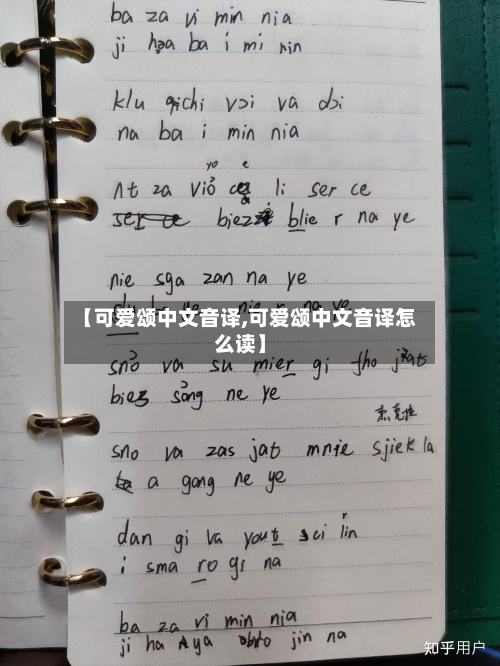 ba za vi min nia
ji hoa ba i mi nin
klu qichi voi va doi
na ba i min nia
yo e
nt za vio li ser ce
biez blie r na ye
nie sga zan na ye
【可爱颂中文音译,可爱颂中文音译怎
么读】
sno va su mier gi fho jiat
bies song ne ye
杰克拉
sno va zas jat mnie sjiek la
a gong ne ye
dan gi va yout sci lin
i sma ro gi na
ba za vi min nia
ji ha ya obito jin na
知乎用户